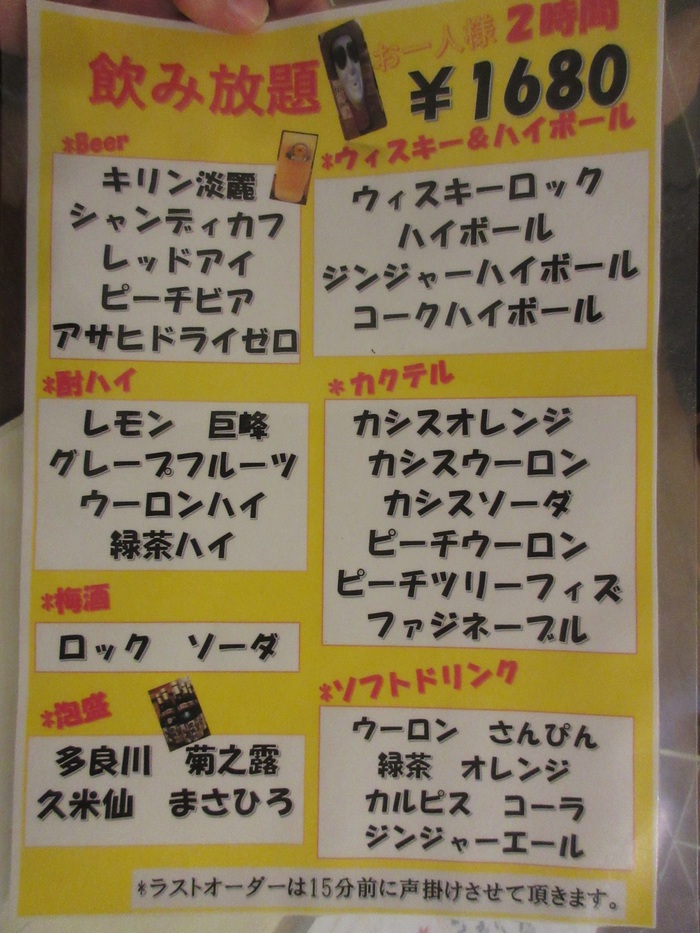 飲み放題
お一人様 2時間
¥1680
*Beer
キリン淡麗
シャンディカフ
レッドアイ
ピーチビア
アサヒドライゼロ
*ウィスキー&ハイボール
ウィスキーロック
ハイボール
ジンジャーハイボール
コークハイボール
*酎ハイ
レモン 巨峰
グレープフルーツ
ウーロンハイ
緑茶ハイ
*カクテル
カシスオレンジ
カシスウーロン
カシスソーダ
ピーチウーロン
ピーチツリーフィズ
ファジネーブル
*梅酒
ロック ソーダ
*泡盛
多良川 菊之露
久米仙 まさひろ
*ソフトドリンク
ウーロン さんぴん
緑茶 オレンジ
カルピス コーラ
ジンジャーエール
*ラストオーダーは15分前に声掛けさせて頂きます。